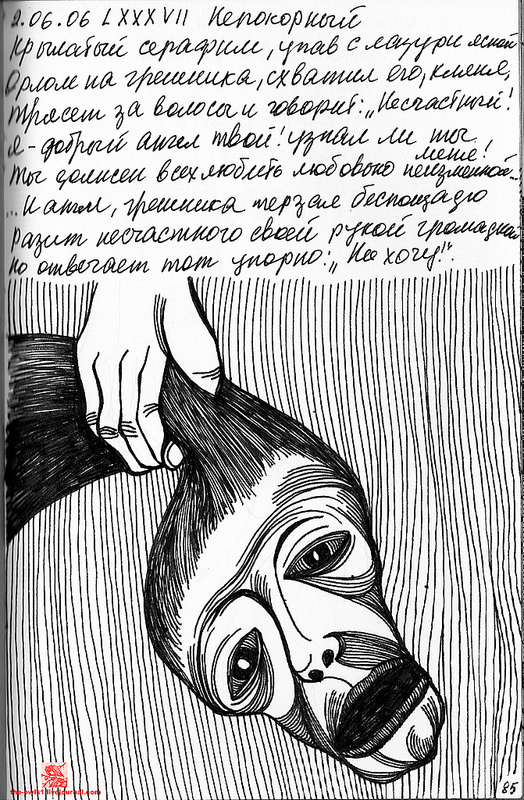 2.06.06 LXXXVII Непокорный
Крылатый серафим, упав с лазури ясной
Орлом на грешника, схватил его, кляня,
Трясет за волосы и говорит: „Несчастный!
Я - добрый ангел твой! узнал ли ты
меня!
Ты должен всех любить любовью неизменной...
... И ангел, грешника терзая беспощадно
Разит несчастного своей рукой громадной
Но отвечает тот упорно: „Не хочу!".
85